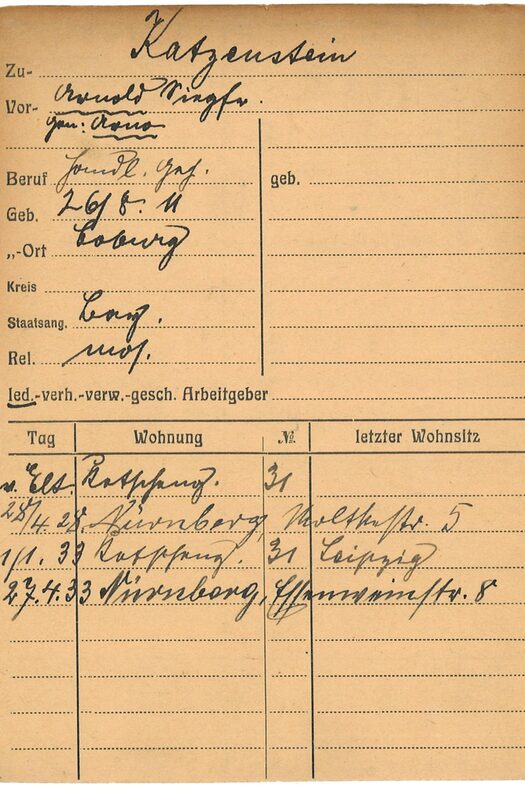 Katzenstein
Zu-
Vor- Arnold Siegfr.
gen: Arno
Beruf Handl. Geh. geb.
Geb. 26/8. 11
„-Ort Coburg
Kreis
Staatsang. Bay.
Rel. mos.
led.-verh.-verw.-gesch. Arbeitgeber
Tag Wohnung № letzter Wohnsitz
v. Elt. 31
28/4. 28. Nürnberg, Moltkestr. 5
1/1. 33 31 Leipzig
27.4.33 Nürnberg, Essenweinstr. 8